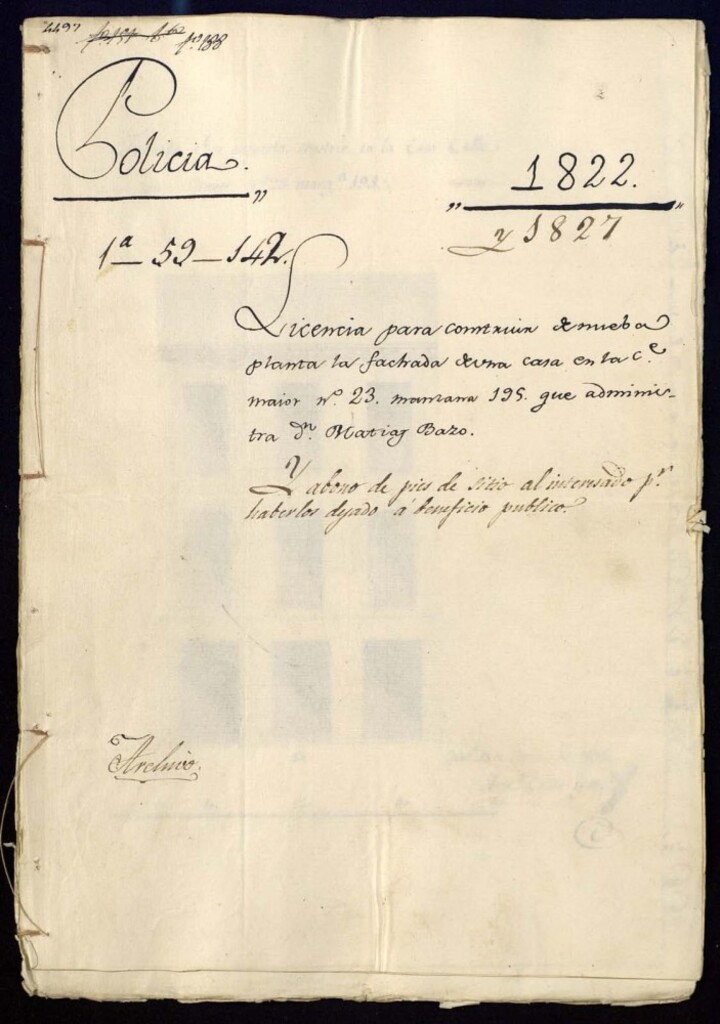 fº 188
Policia.
1822.
y 1827
1ª — 59 — 142.
Licencia para construir de nueba
planta la fachada de una casa en la c.e
maior nº. 23. manzana 195. que adminis-
tra Dn. Matias Bazo.
Y abono de pies de sitio al interesado pr.
haberlos dejado á beneficio publico.
Archivo.